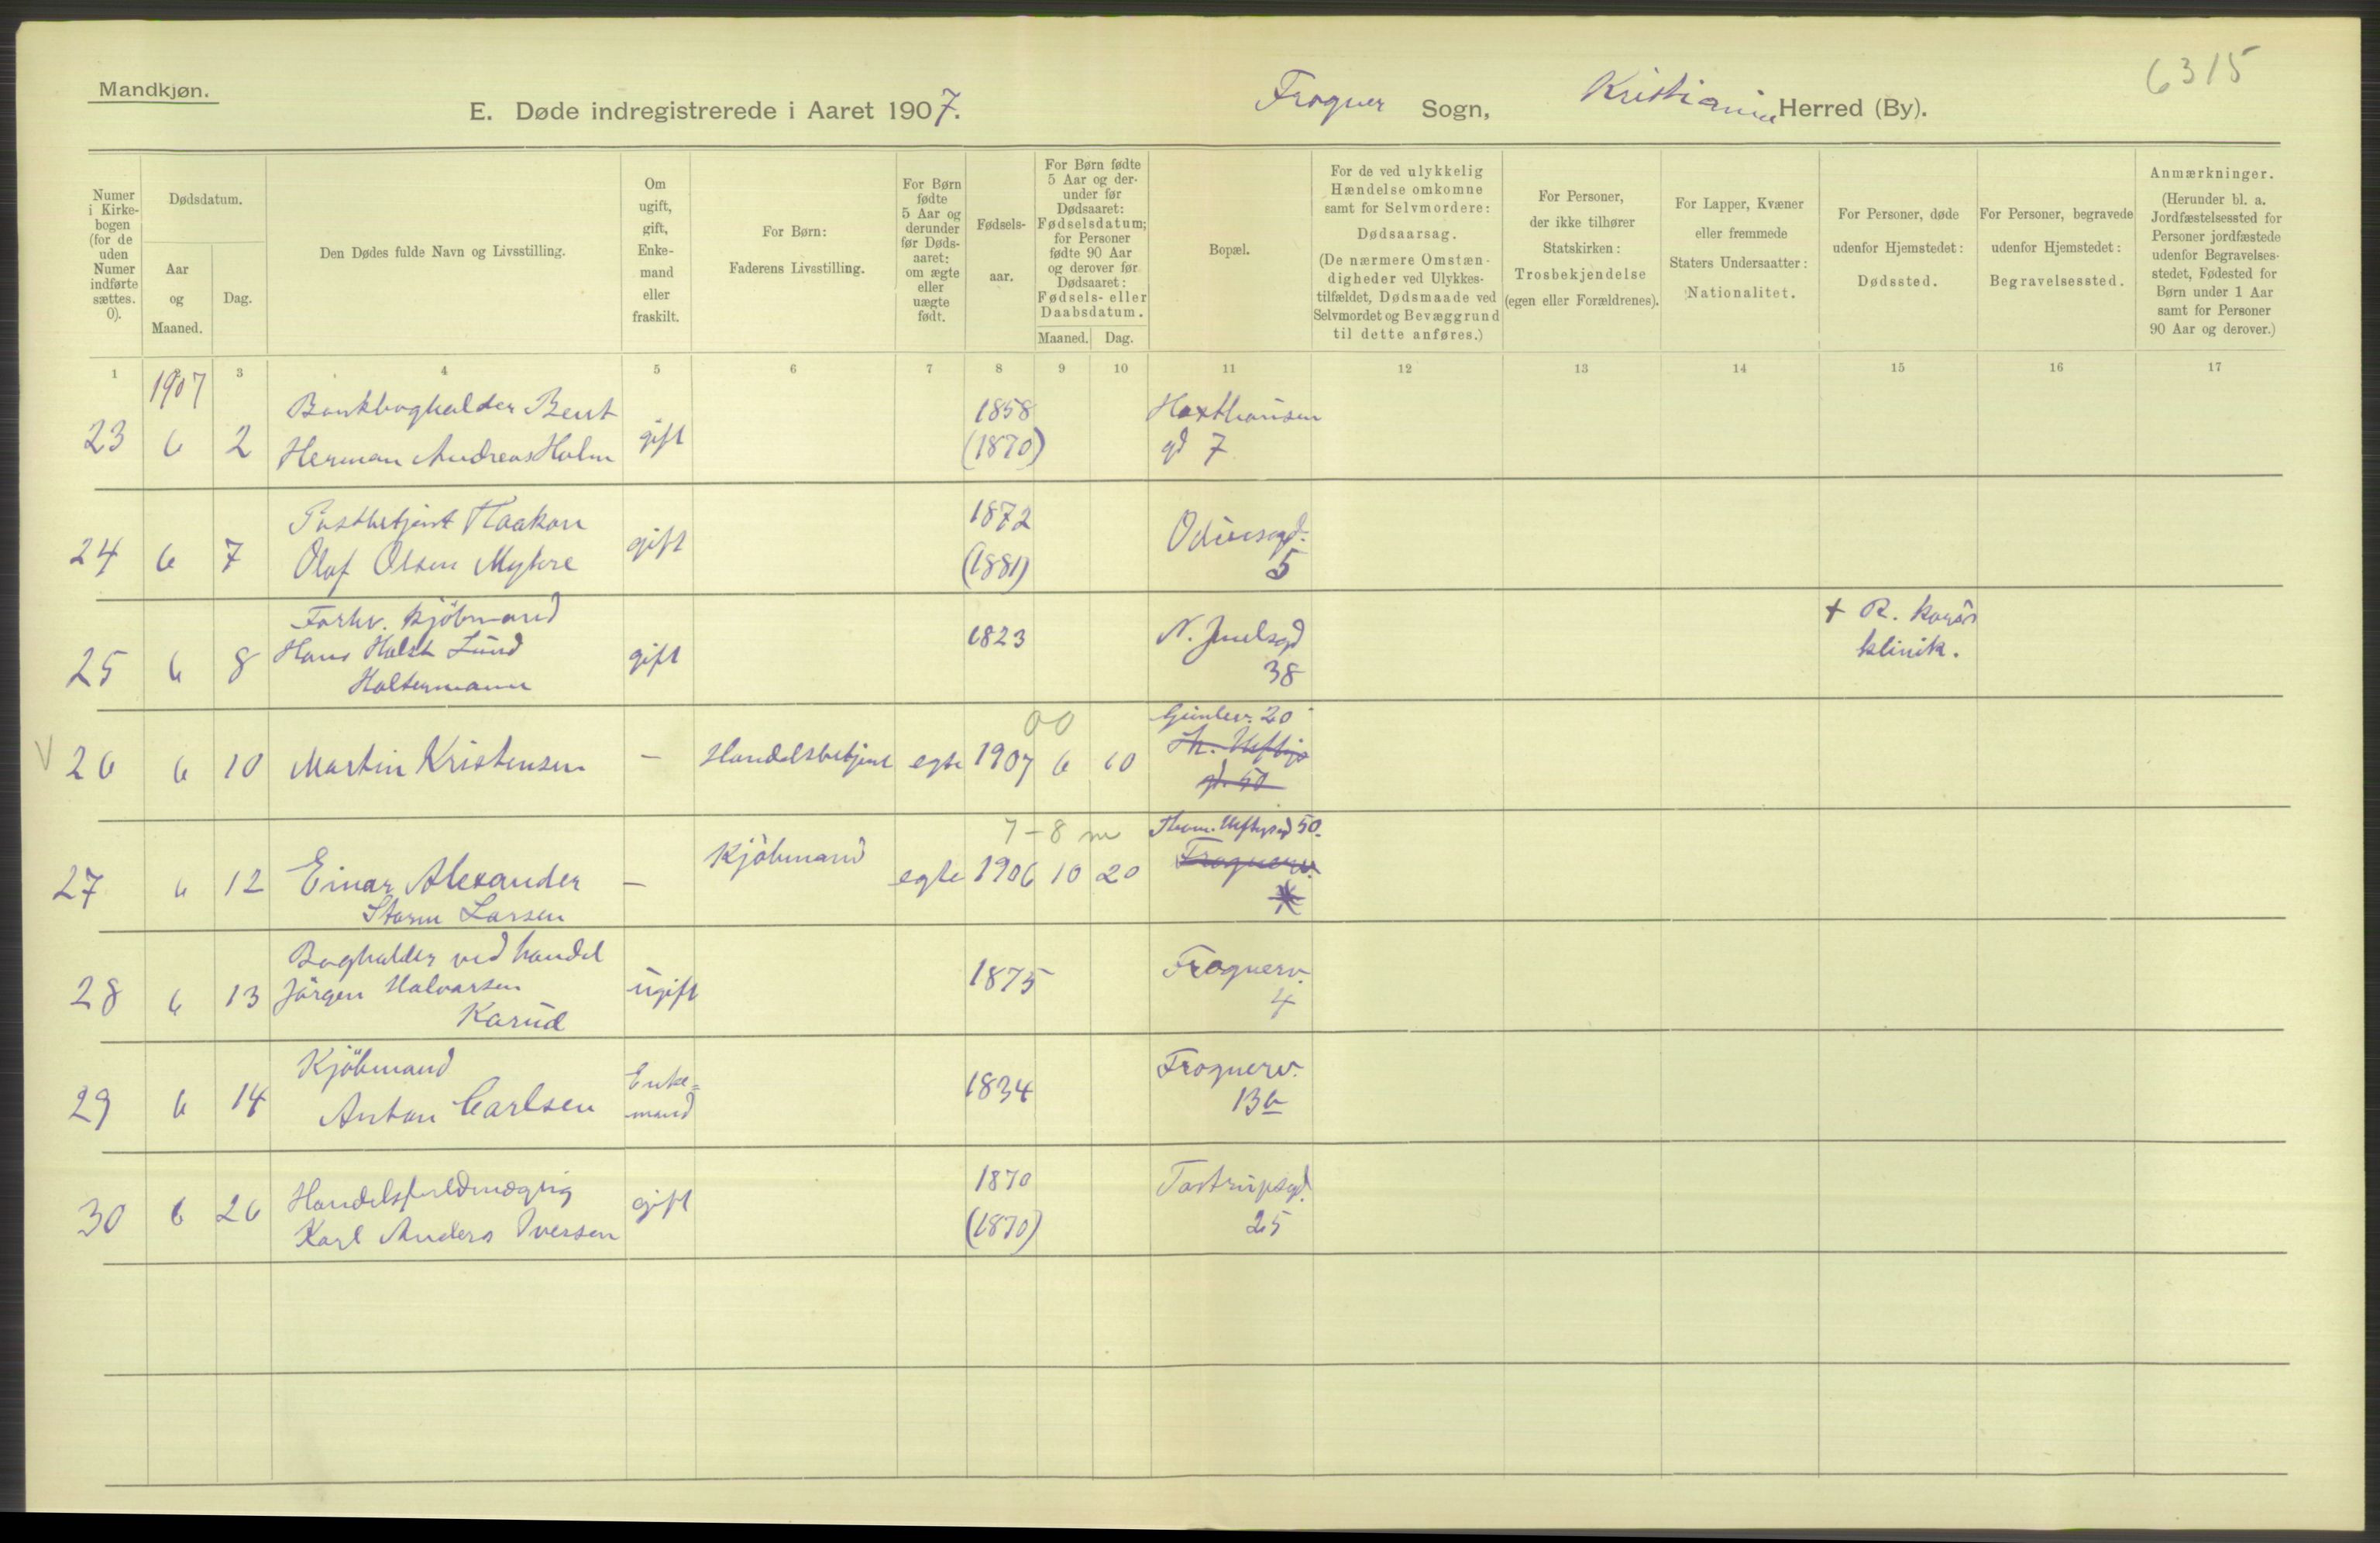 6315
Mandkjøn.
E. Døde indregistrerede i Aaret 1907. Frogner Sogn, Kristiania Herred (By).
Numer i Kirke-bogen (for de uden Numer indførte sættes. 0).
Dødsdatum.
Aar og Maaned.
Dag.
Den Dødes fulde Navn og Livsstilling.
Om ugift, gift, Enke-mand eller fraskilt.
For Børn:
Faderens Livsstilling.
For Børn fødte 5 Aar og derunder før Døds-aaret: om ægte eller uægte født.
Fødsels-aar.
For Børn fødte 5 Aar og der-under før Dødsaaret: Fødselsdatum; for Personer fødte 90 Aar og derover før Dødsaaret: Fødsels- eller Daabsdatum.
Maaned. Dag.
Bopæl.
For de ved ulykkelig Hændelse omkomne samt for Selvmordere: Dødsaarsag. (De nærmere Omstæn-digheder ved Ulykkes-tilfældet, Dødsmaade ved Selvmordet og Bevæggrund til dette anføres.)
For Personer, der ikke tilhører Statskirken: Trosbekjendelse (egen eller Forældrenes).
For Lapper, Kvæner eller fremmede Staters Undersaatter: Nationalitet.
For Personer, døde udenfor Hjemstedet: Dødssted.
For Personer, begravede udenfor Hjemstedet: Begravelsessted.
Anmærkninger. (Herunder bl. a. Jordfæstelsessted for Personer jordfæstede udenfor Begravelses-stedet, Fødested for Børn under 1 Aar samt for Personer 90 Aar og derover.)
1 2 3 4 5 6 7 8 9 10 11 12 13 14 15 16 17
1907
Bankbogholder Bent 1858 Haxthausen
23 6 2 Herman Andreas Holm gift (1870) gd 7
Postbetjent Haakon 1872 Odinsgd.
24 6 7 Olaf Olsen Myhre gift (1881) 5
Forhv. Kjöbmand + R. Kors's
25 6 8 Hans Holst Lund gift 1823 N. Juelsgd klinik.
Holtermann 38
00 Gimlev. 20
V 26 6 10 Martin Kristensen — Handelsbetjent egte 1907 6 10 Th. Heftys
gd. 50
7-8 m Thom. Heftysgd 50.
27 6 12 Einar Alexander — Kjöbmand egte 1906 10 20 Frognerv.
Storm Larsen
Bogholder ved handel
28 6 13 Jörgen Halvorsen ugift 1875 Frognerv.
Karud 4
Kjöbmand Enke= Frognerv.
29 6 14 Anton Carlsen mand 1834 13b
Handelsfuldmægtig 1870 Tostrupsgd.
30 6 26 Karl Anders Iversen gift (1870) 25